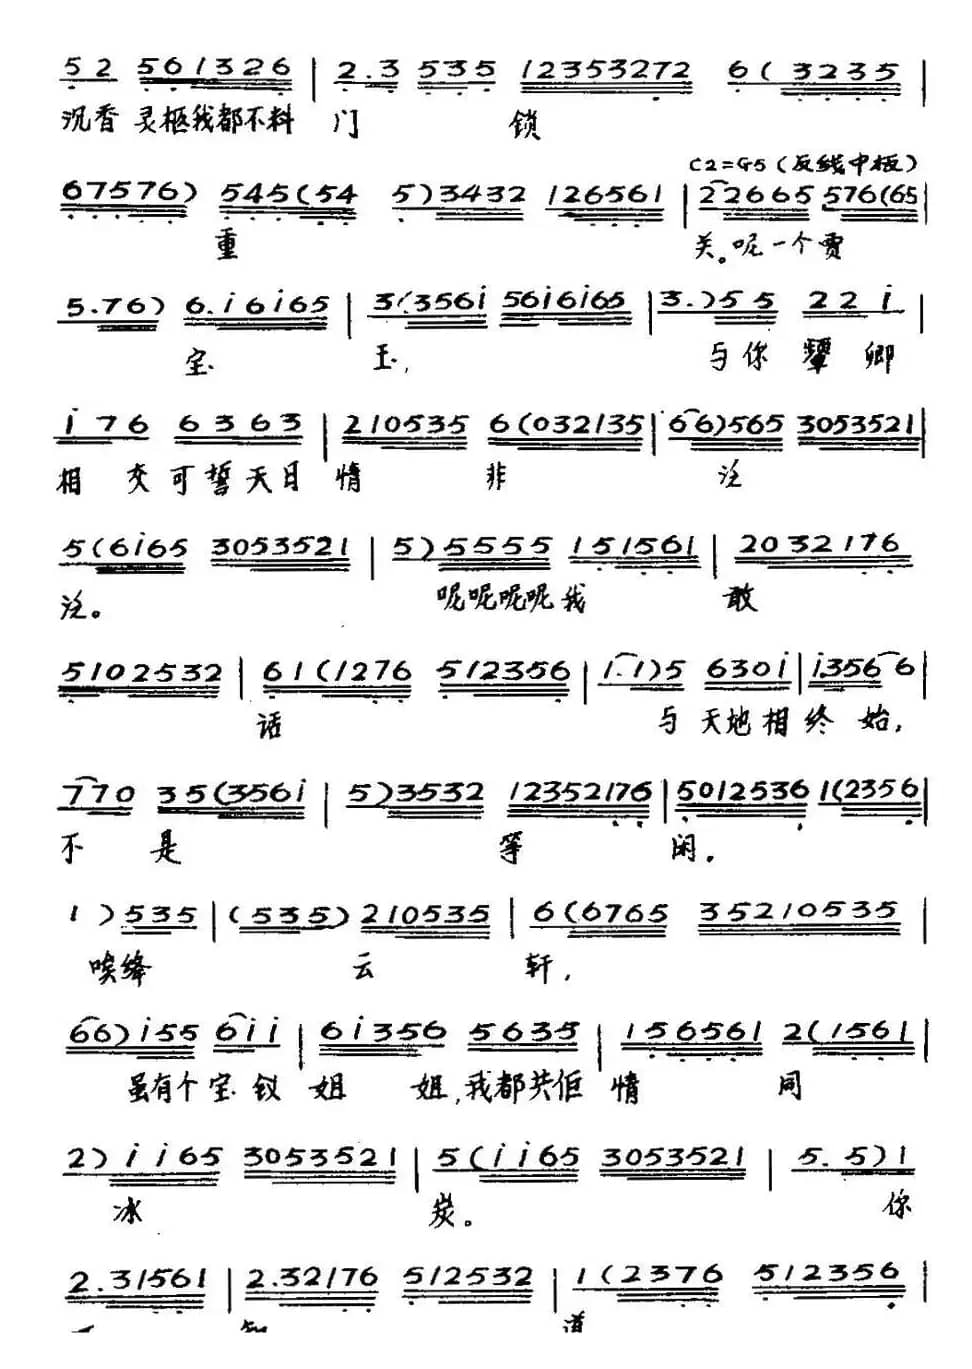 5 2 561326 | 2.3 535 12353272 6(3235 |
沉香 灵柩我都不料 门 锁
C2=G5(反线中板)
67576) 545(54 5)3432 126561 | 22665 576(65 |
重 关。呢一个贾
5.76) 6.i6i65 | 3(356i 56i6i65 | 3.)55 22i |
宝 玉, 与你颦卿
i76 6363 | 210535 6(032135 | (66)565 3053521 |
相 交可誓天日 情 非 泛
5(6i65 3053521 | 5)5555 151561 | 2032176
泛。 呢呢呢呢我 敢
5102532 | 61(1276 512356 | i.i)5 630i | i.3566 |
话 与天地相终始,
770 35(356i | 5)3532 12352176 | 5012536 1(2356 |
不 是 等 闲,
1)535 | (535)210535 | 6(6765 35210535 |
唉绛 云 轩,
66)i55 6ii | 6i356 5635 | 156561 2(1561 |
虽有个宝钗 姐 姐,我都共佢 情 同
2)ii65 3053521 | 5(ii65 3053521 | 5.5)1
冰 炭。 你
2.31561 | 2.32176 512532 | 1(2376 512356 |
道